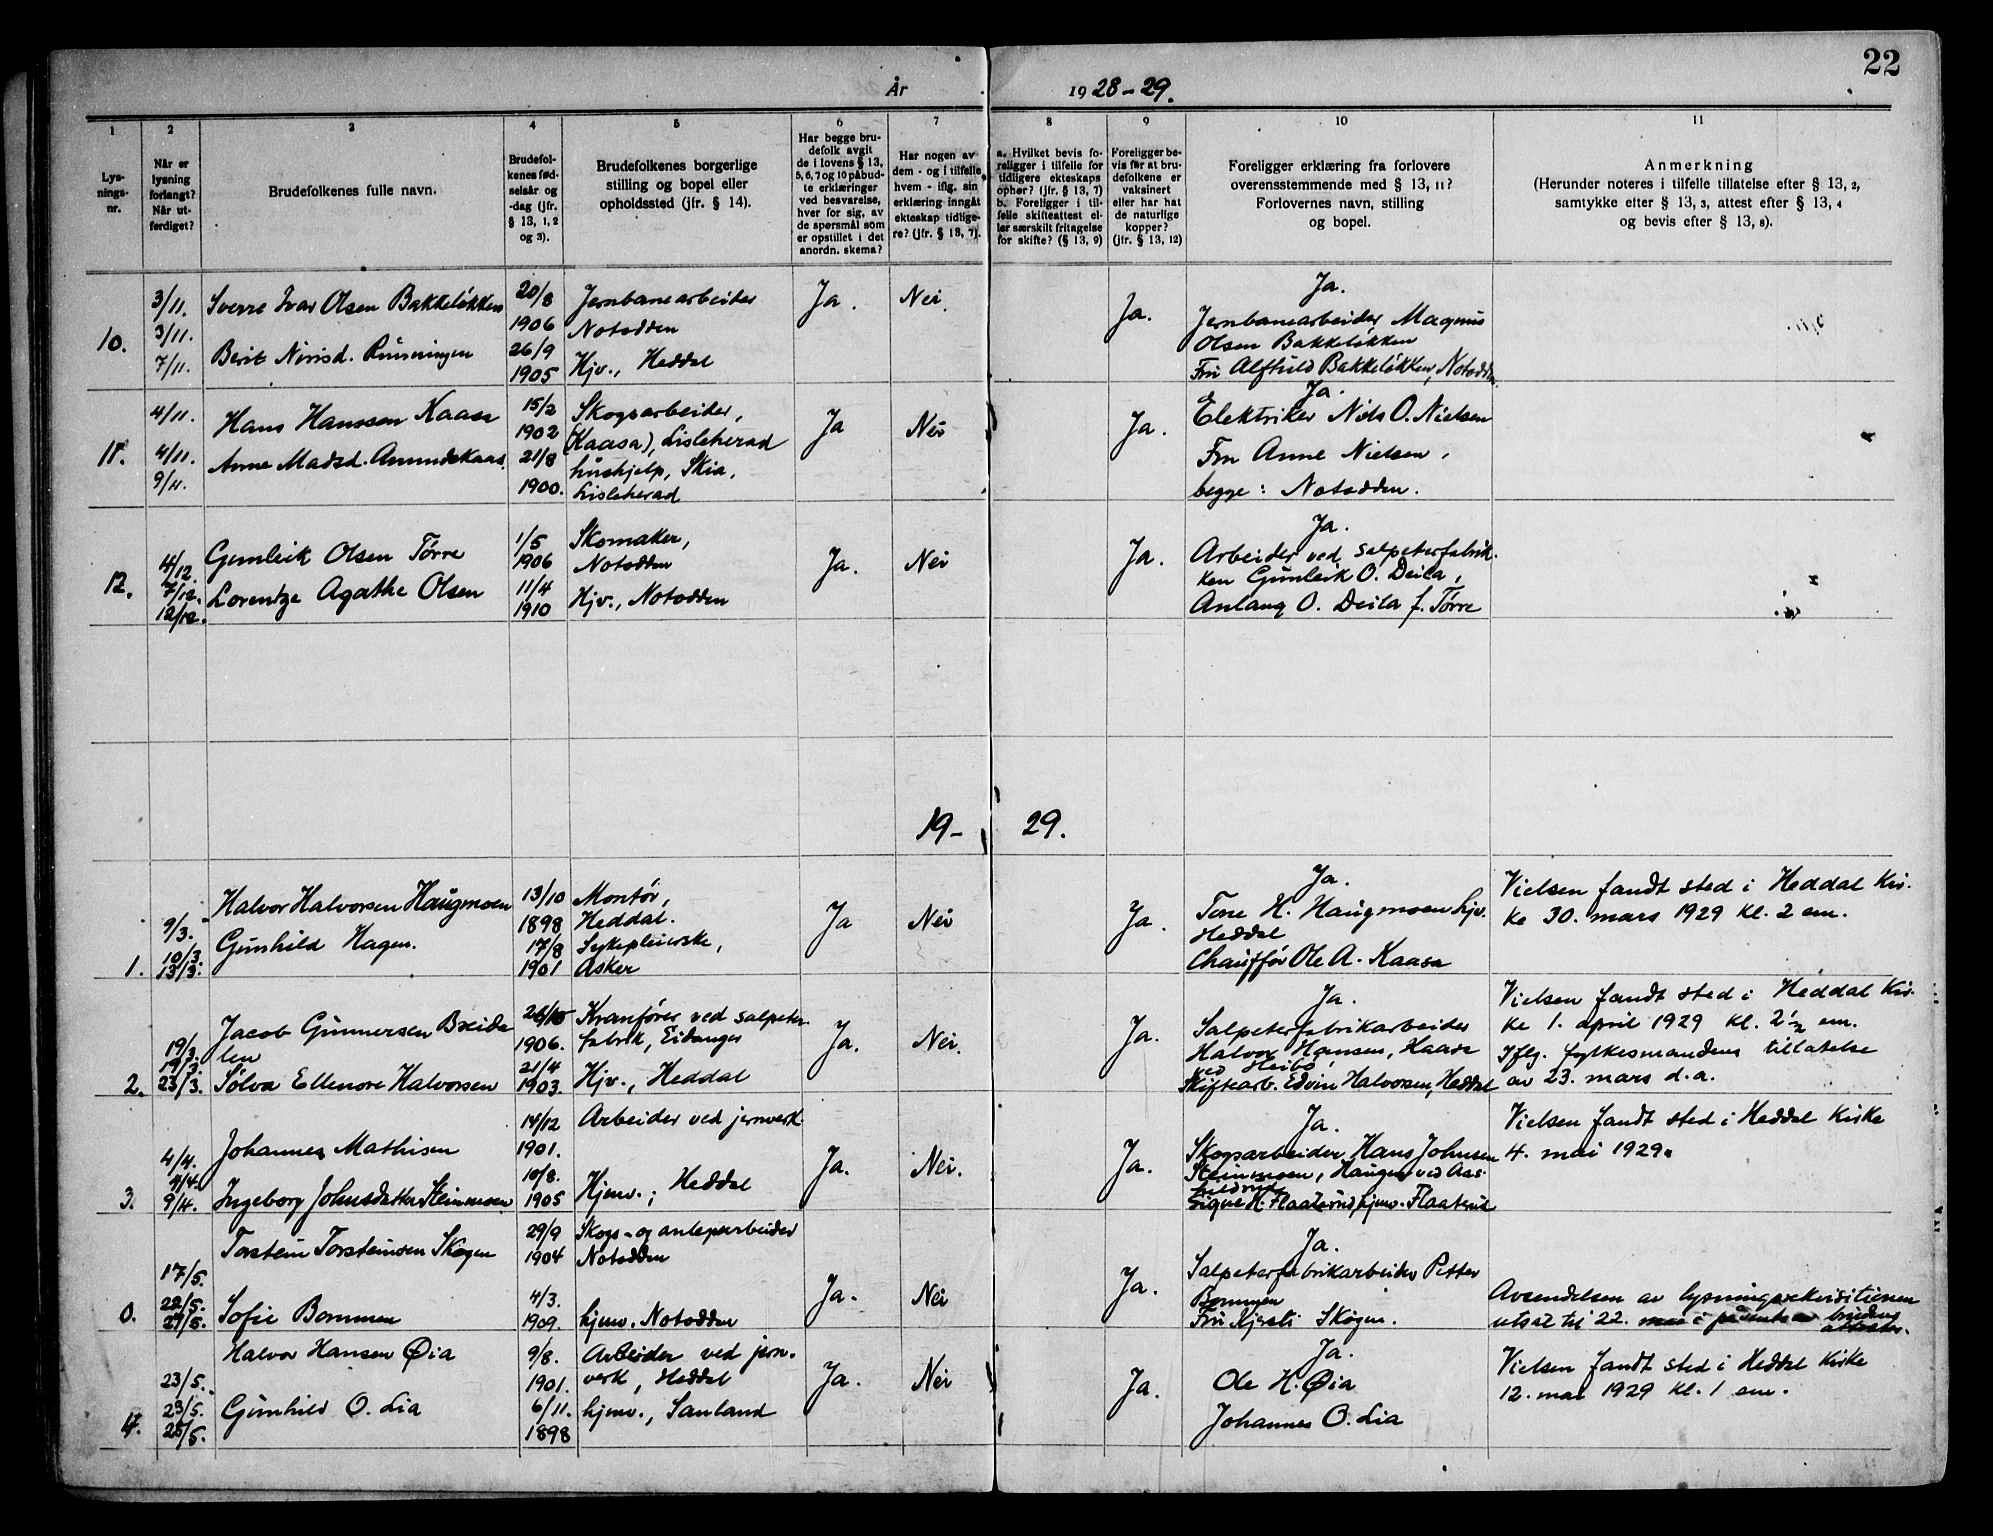 22
År 1928-29.
1
Lys-
nings-
nr.
2
Når er
lysning
forlangt?
Når ut-
ferdiget?
3
Brudefolkenes fulle navn.
4
Brudefol-
kenes fød-
selsår og
-dag (jfr.
§ 13, 1, 2
og 3).
5
Brudefolkenes borgerlige
stilling og bopel eller
opholdssted (jfr. § 14).
6
Har begge bru-
defolk avgit
de i lovens § 13,
5, 6, 7 og 10 påbud-
te erklæringer
ved besvarelse,
hver for sig, av
de spørsmål som
er opstillet i det
anordn. skema?
7
Har nogen av
dem - og i tilfelle
hvem - iflg. sin
erklæring inngått
ekteskap tidlige-
re? (jfr. § 13, 7).
8
a. Hvilket bevis fo-
religger i tilfelle for
tidligere ekteskaps
ophør? (jfr. § 13, 7)
b. Foreligger i til-
felle skifteattest el-
ler særskilt fritagelse
for skifte? (§ 13, 9)
9
Foreligger be-
vis før at bru-
defolkene er
vaksinert
eller har hat
de naturlige
kopper?
(jfr. § 13, 12)
10
Foreligger erklæring fra forlovere
overensstemmende med § 13, 11?
Forlovernes navn, stilling
og bopel.
11
Anmerkning
(Herunder noteres i tilfelle tillatelse efter § 13, 2,
samtykke efter § 13, 3, attest efter § 13, 4
og bevis efter § 13, 8).
10.
3/11.
3/11.
7/11.
Sverre Ivar Olsen Bakkeløkken
Berit Nirisd. Rusningen
20/8
1906
26/9
1905
Jernbanearbeider
Notodden
Hjv., Heddal
Ja.
Nei
Ja.
Ja.
Jernbanearbeider Magnus
Olsen Bakkeløkken
Fru Alfhild Bakkeløkken, Notodden
11.
4/11.
4/11.
9/11.
Hans Hanssen Kaasa
Anne Madsd. Amundskaas
15/2
1902
21/8
1900.
Skogsarbeider,
(Kaasa), Lisleherad
hushjelp, Skia,
Lisleherad
Ja
Nei
Ja.
Ja.
Elektriker Nils O. Nielsen
Fru Anne Nielsen,
begge: Notodden.
12.
4/12.
7/12.
12/12.
Gunleik Olsen Tørre
Lorentze Agathe Olsen
1/5
1906
11/4
1910
Skomaker,
Notodden
Hjv., Notodden
Ja.
Nei
Ja.
Ja.
Arbeider ved salpeterfabrik-
ken Gunleik O. Deila,
Anlaug O. Deila f. Tørre
19-29.
1.
9/3.
10/3
13/3.
Halvor Halvorsen Haugmoen
Gunhild Hagen.
13/10
1898
17/8
1901
Montør,
Heddal.
Sykepleierske,
Asker
Ja
Nei
Ja.
Ja.
Tone H. Haugmoen hjv.
Heddal
Chauffør Ole A. Kaasa
Vielsen fandt sted i Heddal Kir-
ke 30. mars 1929 kl. 2 em.
2.
19/3.
19/3.
23/3.
Jacob Gunnersen Breida
len
Sølva Ellenore Halvorsen
26/10
1906.
21/4
1903.
Kranfører ved salpeter-
fabrik, Eidanger
Hjv., Heddal
Ja.
Nei.
Ja.
Ja.
Salpeterfabrikarbeider
Halvor Hansen, Kaasa
ved Heibø,
Skiftearb. Edvin Halvorsen, Heddal
Vielsen fandt sted i Heddal Kir-
ke 1. april 1929 kl. 2½ em.
Iflg. fylkesmandens tillatelse
av 23. mars d.a.
3.
4/4.
4/4.
9/4.
Johannes Mathisen
Ingeborg Johnsdatter Steinmoen
14/12
1901.
10/8.
1905
Arbeider ved jernverk.
Hjemv.; Heddal
Ja.
Nei.
Ja.
Ja.
Skogsarbeider Hans Johnsen
Steinmoen, Haugen ved Aas-
Signe H. Flaaterud hjemv. Flaaterud
Vielsen fandt sted i Heddal Kirke
4. mai 1929.
0.
17/5.
22/5.
27/5.
Torstein Torsteinsen Skogen
Sofie Bommen
29/9
1904
4/3.
1909.
Skogs- og anlegsarbeider
Notodden
hjemv. Notodden
Ja.
Nei
Ja.
Ja.
Salpeterfabrikarbeider Petter
Bommen
Fru Kjersti Skogen.
Avsendelsen av lysningsrekvisitionen
utsat til 22. mai i påvente av brudens
attester.
4.
23/5.
23/5.
28/5.
Halvor Hansen Øia
Gunhild O. Lia
9/8.
1901.
6/11.
1898
Arbeider ved jern-
verk, Heddal
hjemv., Sauland
Ja.
Nei
Ja.
Ja.
Ole H. Øia
Johannes O. Lia
Vielsen fandt sted i Heddal Kirke
12. mai 1929 kl. 1 em.